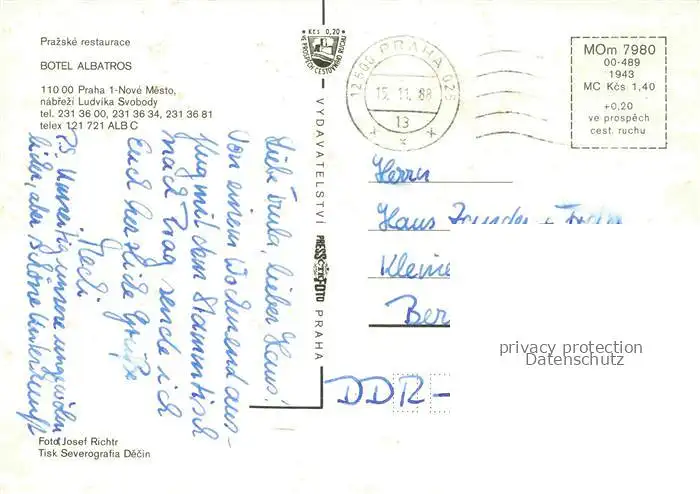 Pražské restaurace
BOTEL ALBATROS
110 00 Praha 1-Nové Město,
nábřeží Ludvíka Svobody
tel. 231 36 00, 231 36 34, 231 36 81
telex 121 721 ALB C
Liebe Trula, lieber Hans!
Von einem Wochenend aus-
flug mit dem Stammtisch
nach Prag sende ich
Euch herzliche Grüße
Hedi
P.S. Umseitig unsere ungewöhn
liche, aber schöne Unterkunft
Foto Josef Richtr
Tisk Severografia Děčín
Kčs 0,20
VE PROSPĚCH CESTOVNÍHO RUCHU
VYDAVATELSTVÍ PRESSFOTO PRAHA
12500 PRAHA 025
15.11.88
13
MOm 7980
00-489
1943
MC Kčs 1,40
+0,20
ve prospěch
cest. ruchu
Herrn
Hans
Kleine
Ber
DDR-
privacy protection
Datenschutz